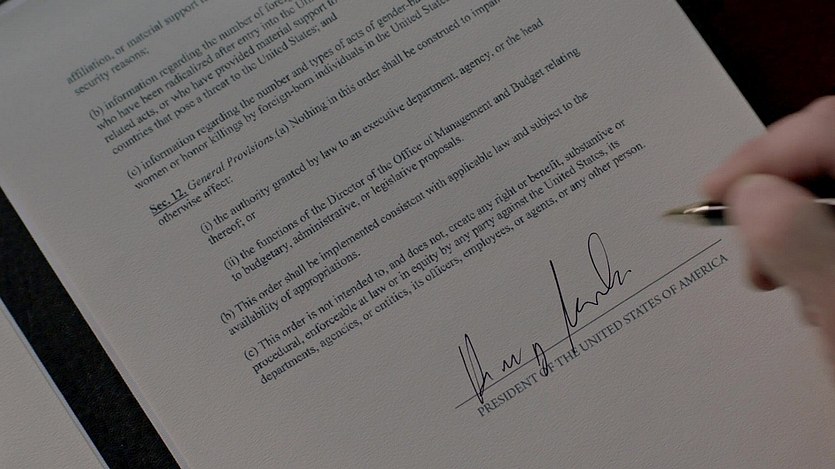 affiliation, or material support
security reasons;
(b) information regarding the number of
who have been radicalized after entry into the
related acts, or who have provided material support to
countries that pose a threat to the United States; and
(c) information regarding the number and types of acts of
women or honor killings by foreign-born individuals in the United States
Sec. 12. General Provisions. (a) Nothing in this order shall be construed to
otherwise affect:
(i) the authority granted by law to an executive department, agency, or the head
thereof; or
(ii) the functions of the Director of the Office of Management and Budget relating
to budgetary, administrative, or legislative proposals.
(b) This order shall be implemented consistent with applicable law and subject to the
availability of appropriations.
(c) This order is not intended to, and does not, create any right or benefit, substantive or
procedural, enforceable at law or in equity by any party against the United States, its
departments, agencies, or entities, its officers, employees, or agents, or any other person.
PRESIDENT OF THE UNITED STATES OF AMERICA